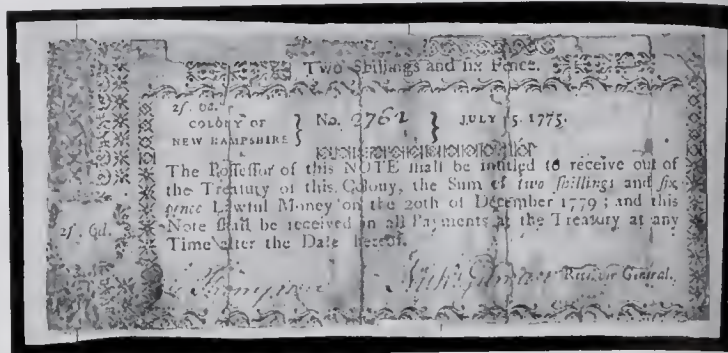 Two Shillings and six Pence.
2s. 6d.
COLONY OF
NEW HAMPSHIRE } No. 2762 } JULY 25. 1775.
The Possessor of this NOTE shall be intitled to receive out of
the Treasury of this Colony, the Sum of two shillings and six
pence Lawful Money on the 20th of December 1779; and this
Note shall be received in all Payments at the Treasury at any
Time after the Date hereof.
2s. 6d.
Thompson Nichs Gilman Receiver General.